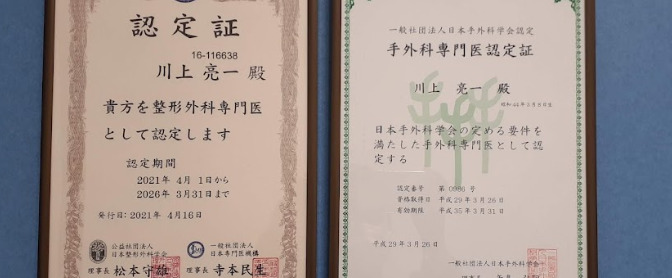 認定証
16-116638
川上 亮一 殿
貴方を整形外科専門医
として認定します
認定期間
2021年 4月 1日から
2026年 3月31日まで
発行日: 2021年 4月16日
公益社団法人
日本整形外科学会
理事長 松本守雄
一般社団法人
日本専門医機構
理事長 寺本民生
一般社団法人日本手外科学会認定
手外科専門医認定証
川上 亮一 殿
日本手外科学会の定める要件を
満たした手外科専門医として認
定する
認定番号 第 0996 号
資格取得日 平成29年3月26日
有効期限 平成35年3月31日
平成29年3月26日
一般社団法人日本手外科学会